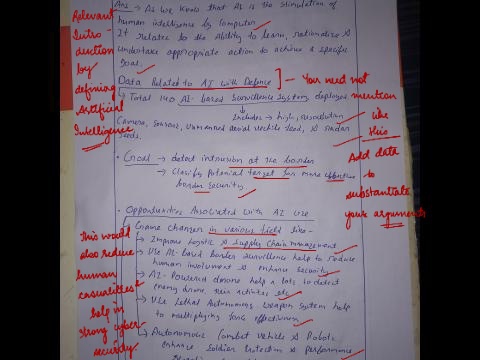 Ans → As we know that AI is the stimulation of
human intelligence by computer.
It relates to the ability to learn, rationalize &
undertake appropriate action to achieve a specific
Goal.
Relevant
Intro-
duction
by
defining
Artificial
Intelligence
Data Related to AI with Defence
→ Total 140 AI-based Surveillance System deployed
Includes → high resolution
Camera, Sensor, Unmanned aerial vehicle feed, & Radar
feeds.
You need not
mention
like
this
• Goal → detect intrusion at the border
→ Classify potential target for more effective
border security
Add data
to
substantiate
your arguments
• Opportunities Associated with AI use
Game changer in various field like-
→ Improve logistic & supply chain management
→ Use AI-based border surveillance help to reduce
human involvement & enhance security
→ AI-Powered drone help a lots to detect
enemy drone, their activities etc.
→ Use Lethal Autonomous Weapon system help
to multiplying force effectiveness
→ Autonomous Combat Vehicle & Robots
enhance Soldier Protection & performance
This would
also reduce
human
casualties
help in
strong cyber
security